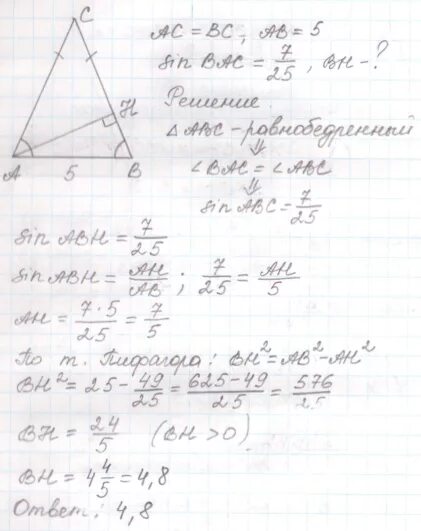 C
H
A
5
B
AC = BC, AB = 5
sin BAC = 7/25, BH - ?
Решение.
△ ABC - равнобедренный
⇓
∠BAC = ∠ABC
⇓
sin ABC = 7/25
sin ABH = 7/25
sin ABH = AH/AB; 7/25 = AH/5
AH = 7·5/25 = 7/5
По т. Пифагора: BH² = AB² - AH²
BH² = 25 - 49/25 = 625-49/25 = 576/25
BH = 24/5 (BH > 0)
BH = 4 4/5 = 4,8
Ответ: 4,8